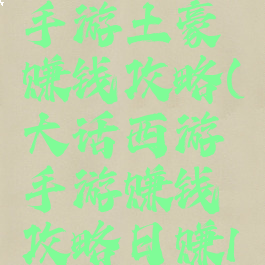 手游土豪
赚钱攻略(
大话西游
手游赚钱
攻略日赚1